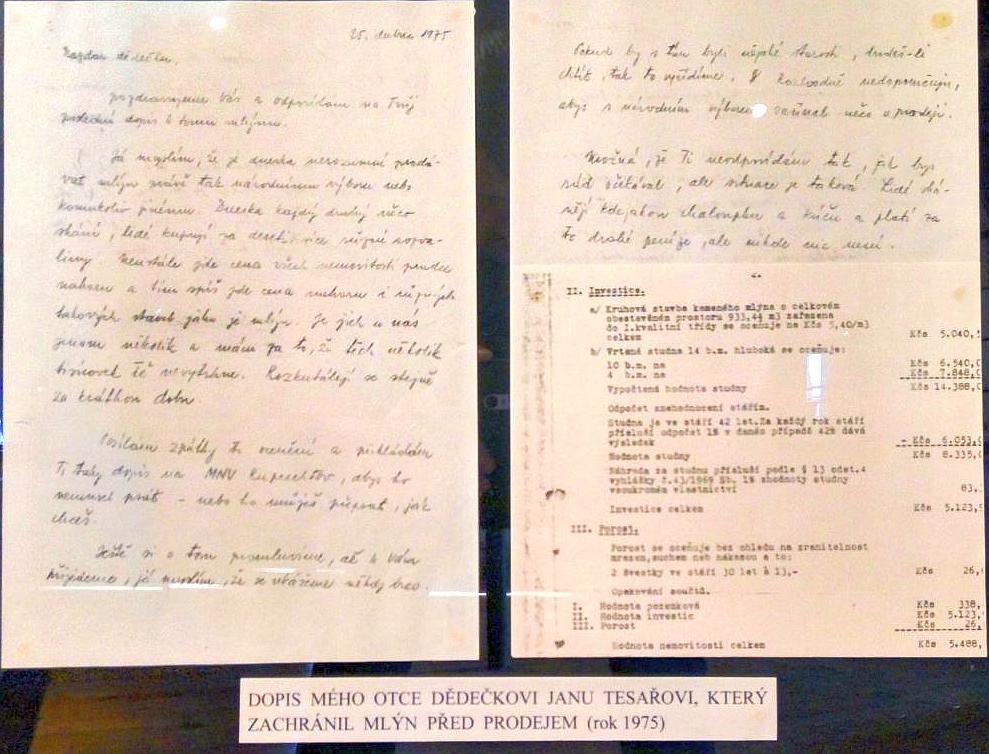 25. dubna 1975
Nazdar dědečku,
pozdravujeme Vás a odpovídám na Tvůj
poslední dopis k tomu mlýnu.
Já myslím, že je dneska nerozumné prodá-
vat mlýn právě tak národnímu výboru nebo
komukoliv jinému. Dneska každý druhý něco
shání, lidé kupují za desetitisíce různé rozva-
liny. Neustále jde cena všech nemovitostí prudce
nahoru a tím spíš jde cena nahoru i různých
takových staveb jako je mlýn. Je jich u nás
znám několik a mám za to, že těch několik
tisícovek tě nevytrhne. Rozkutálejí se stejně
za krátkou dobu.
Posílám zpátky to ocenění a přikládám
Ti taky dopis na MNV Ruprechtov, abys ho
nemusel psát - nebo ho můžeš přepsat, jak
chceš.
Ještě si o tom promluvíme, až k Vám
přijedeme, já myslím, že se ukážeme někdy brzo.
Pokud by s tím byli nějaké starosti, budeš-li
chtít, tak to vyřídíme. Rozhodně nedoporučuju,
abys s národním výborem začínal něco o prodeji.
Možná, že Ti neodpovídám tak, jak bys
rád očekával, ale situace je taková. Lidé shá-
nějí kdejakou chaloupku a kůču a platí za
to drahé peníze, ale nikde nic není.
II. Investice.
a/ Kruhová stavba kamenného mlýna o celkovém
obestavěném prostoru 933,44 m3 zařazena
do I.kvalitní třídy se oceňuje na Kčs 5,40/m3
celkem Kčs 5.040,5
b/ Vrtaná studna 14 b.m. hluboká se oceňuje:
10 b.m. na Kčs 6.540,0
4 b.m. na Kčs 7.848,0
Vypočtená hodnota studny Kčs 14.388,0
Odpočet znehodnocení stářím.
Studna je ve stáří 42 let.Za každý rok stáří
přísluší odpočet 1% v daném případě 42% dává
výsledek - Kčs 6.053,0
Hodnota studny Kčs 8.335,0
Náhrada za studnu přísluší podle § 13 odst.4
vyhlášky č.43/1969 Sb. 1% zhodnoty studny
vsoukromém vlastnictví 83.
Investice celkem Kčs 5.123,5
III. Porost.
Porost se oceňuje bez ohledu na zranitelnost
mrazem,suchem neb nákazou a to:
2 švestky ve stáří 30 let à 13,- Kčs 26,
Opakování součtů.
I. Hodnota pozemková Kčs 338,
II. Hodnota investic Kčs 5.123,
III. Porost Kčs 26,
Hodnota nemovitosti celkem Kčs 5.488,
DOPIS MÉHO OTCE DĚDEČKOVI JANU TESAŘOVI, KTERÝ
ZACHRÁNIL MLÝN PŘED PRODEJEM (rok 1975)